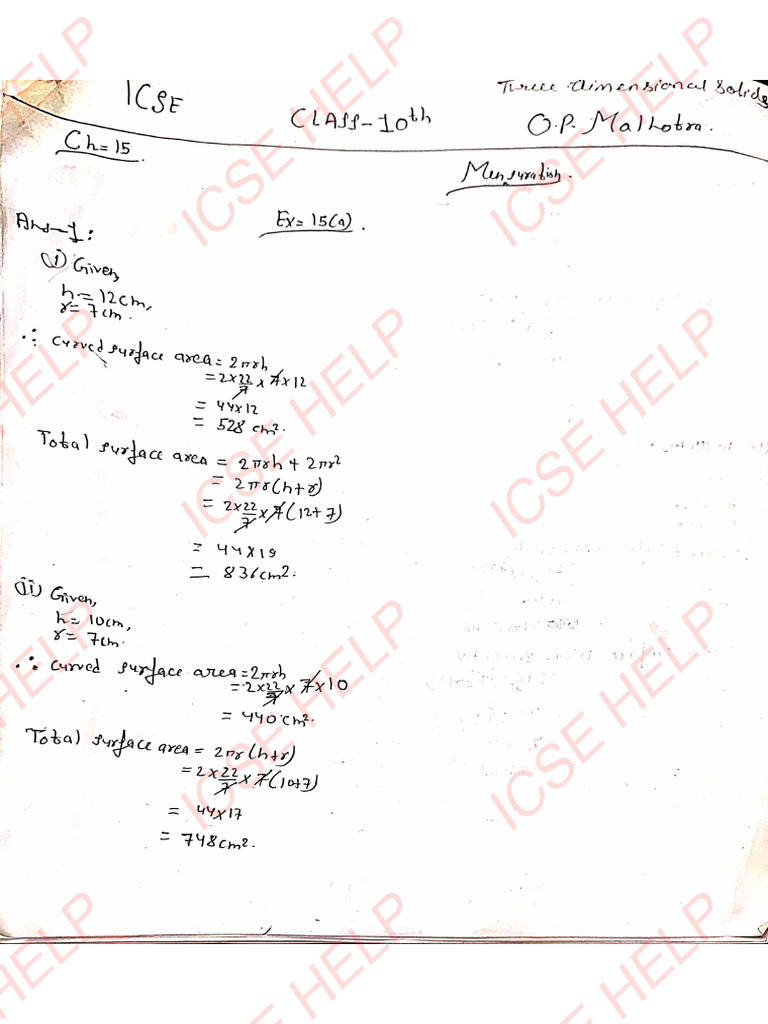 ICSE
Three dimensional Solids
CLASS-10th
O.P. Malhotra.
Ch=15
Mensuration.
Ex=15(a).
Ans-1:
(i) Given,
h=12cm,
r=7cm.
∴ Curved surface area=2πrh
=2×22/7×7×12
=44×12
=528 cm².
Total surface area = 2πrh+2πr²
= 2πr(h+r)
= 2×22/7×7(12+7)
= 44×19
= 836cm².
(ii) Given,
h=10cm,
r=7cm.
∴ Curved surface area=2πrh
=2×22/7×7×10
=440 cm².
Total surface area= 2πr(h+r)
=2×22/7×7(10+7)
= 44×17
= 748cm².
ICSE HELP
ICSE HELP
ICSE HELP
ICSE HELP
ICSE HELP
ICSE HELP
ICSE HELP
ICSE HELP